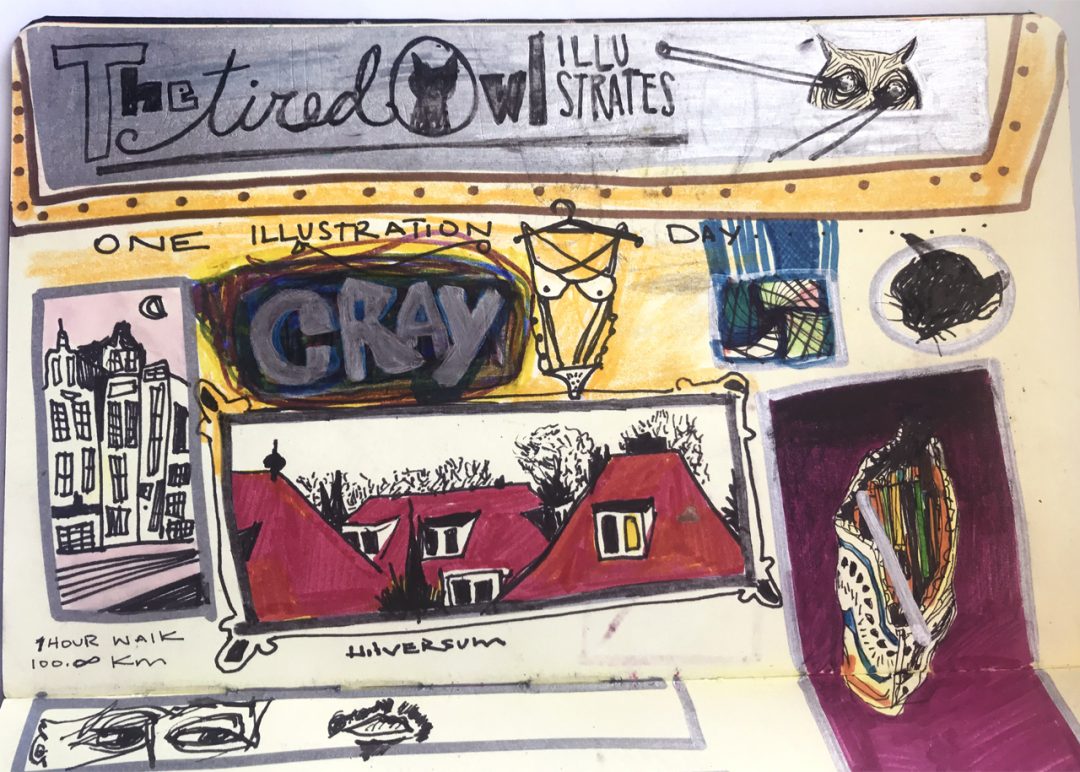 The tired Owl
ILLU
STRATES
ONE ILLUSTRATION DAY
CRAY
1 HOUR WALK
100.00 Km
HILVERSUM